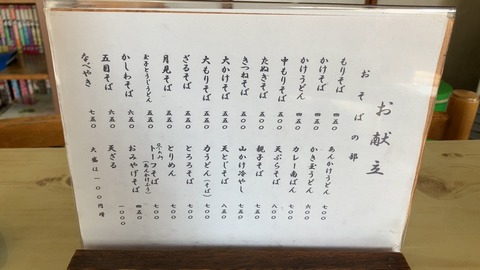 お献立
おそばの部
もりそば 四五〇
かけそば 四五〇
かけうどん 四五〇
中もりそば 五五〇
たぬきそば 五五〇
きつねそば 五五〇
大かけそば 五五〇
大もりそば 五五〇
ざるそば 五五〇
月見そば 五五〇
玉子とじうどん 五五〇
かしわそば 六五〇
五目そば 六五〇
なべやき 七五〇
あんかけうどん 七〇〇
かき玉うどん 六〇〇
カレー南ばん 七〇〇
天ぷらそば 八〇〇
親子そば 七五〇
山かけ冷やし 八五〇
天とじそば 八五〇
力うどん(そば) 七〇〇
とろろそば 七〇〇
とりめん 七〇〇
トーフそば(あんかけふう) 七〇〇
おみやげそば 四五〇
天ざる 一〇〇〇
大盛は一〇〇円増